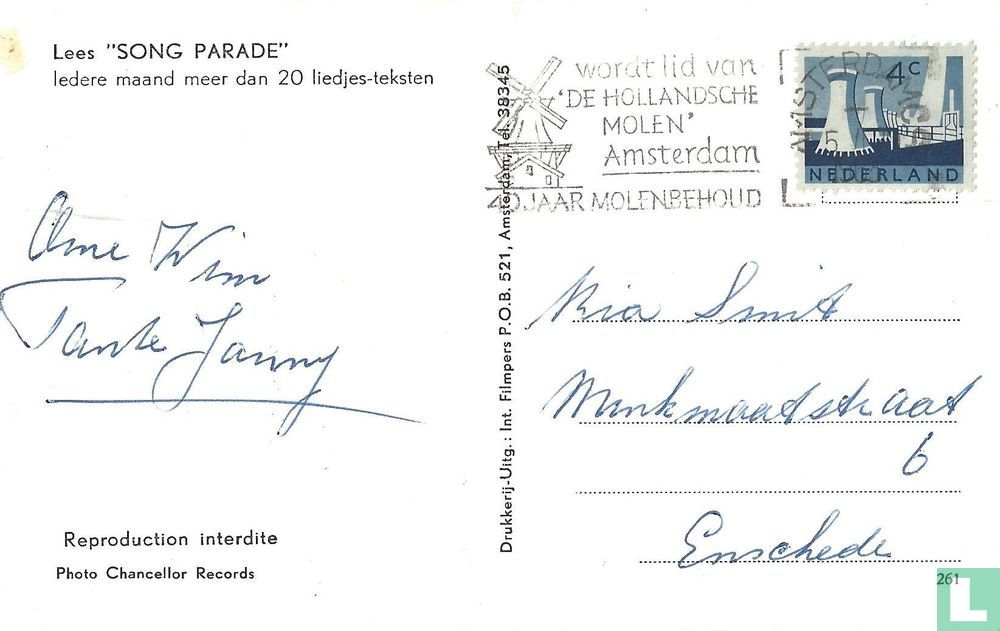 Lees "SONG PARADE"
Iedere maand meer dan 20 liedjes-teksten
Ome Wim
Tante Janny
Reproduction interdite
Photo Chancellor Records
Drukkerij-Uitg.: Int. Filmpers P.O.B. 521, Amsterdam, Tel. 38345
wordt lid van
'DE HOLLANDSCHE
MOLEN'
Amsterdam
JAAR MOLENBEHOUD
AMSTERDAM
4c
NEDERLAND
Ria Smit
Menkmaatstraat
6
Enschede
261
L